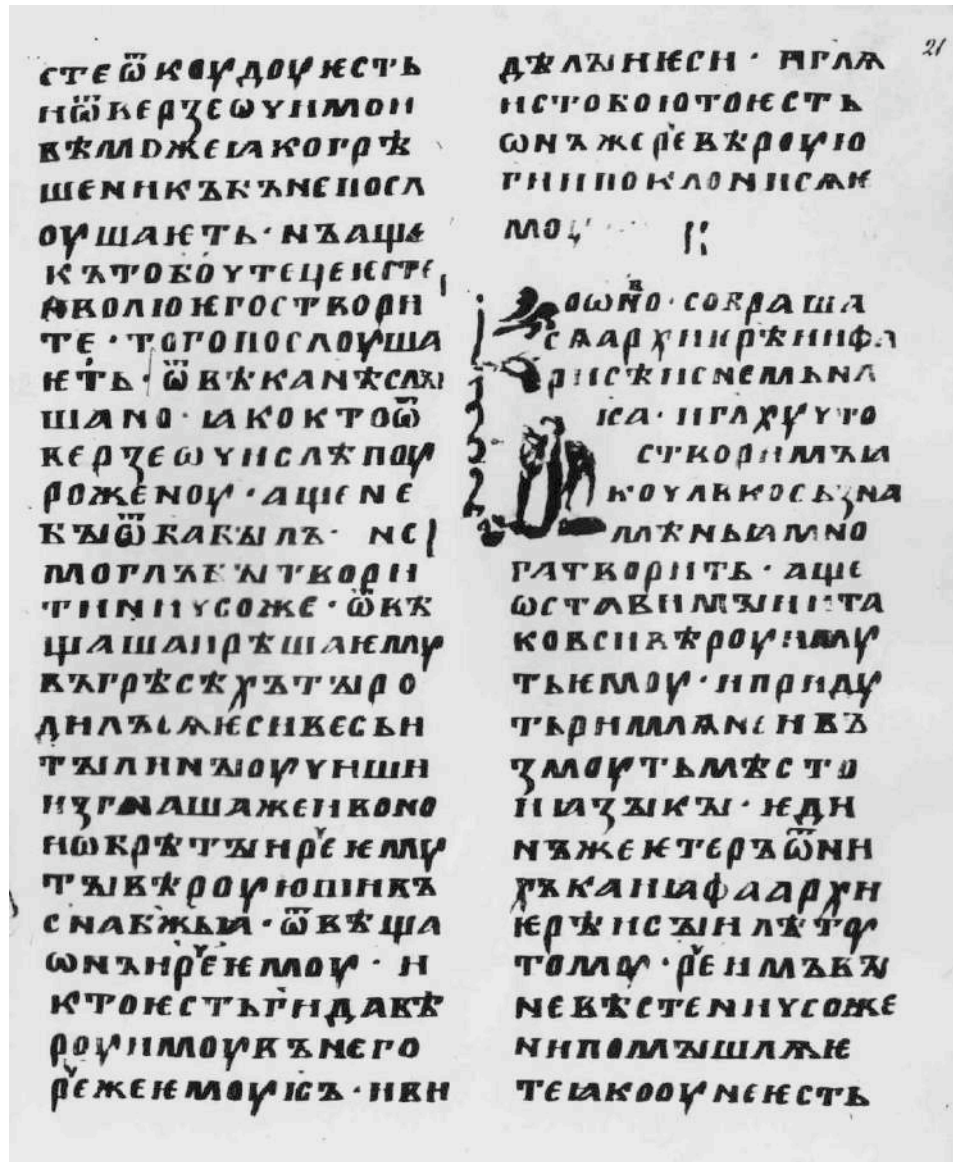 21
сте ѿкꙋдоу ѥсть
и ѿверзе ѡчи мои
вѣмꙑ же ꙗко грѣ
шеникъ б҃ъ не посл
оушаѥть · нъ аще
къто б҃оѹтець ѥсть
волю ѥго створи
ть · того послоуша
ѥть · ѿ вѣка нѣ слꙑ
шано · ꙗко кто ѿ
верзе ѡчи слѣпоу
роженоу · аще не
бꙑ ѿ б҃а бꙑлъ · не
моглъ бꙑ твори
ти ничсоже · ѿвѣ
щаша и рѣша ѥмꙋ
въ грѣсѣхъ тꙑ ро
дилъ сѧ ѥси весь и
тꙑ ли нꙑ оучиши
изгнаша же и воно
и ѡбрѣтꙑи рече ѥмꙋ
тꙑ вѣроуюши въ
сна бжьꙗ · ѿвѣща
ѡнъ и рече ѥмоу · и
кто ѥсть г҃и да вѣ
роуи моу въ него
рече же ѥмоу і҃съ · и ви
дѣлꙑи ѥси · и г҃лѧ
и с тобою то ѥсть
ѡнъ же рече вѣроую
г҃и и поклони сѧ ѥ
моу
во ѡно · собраша
сѧ архиѥрѣи и фа
рисѣи с нем на
і҃са · и г҃лхꙋ что
створимъ ꙗ
ко ч҃лвкось зна
мѣньꙗ мно
га творить · аще
ѡставимꙑ и та
ко вси вѣроу имꙋ
ть ѥмоу · и придꙋ
ть римлѧне и въ
змоуть мѣсто
и ꙗзꙑкꙑ · ѥди
нъ же ѥтеръ ѿ ни
хъ каиꙗфа архи
ѥрѣи сꙑи лѣтꙋ
томꙋ · рече имъ вꙑ
не вѣсте ничсоже
ни помꙑшлѧѥ
те ꙗко оуне ѥсть